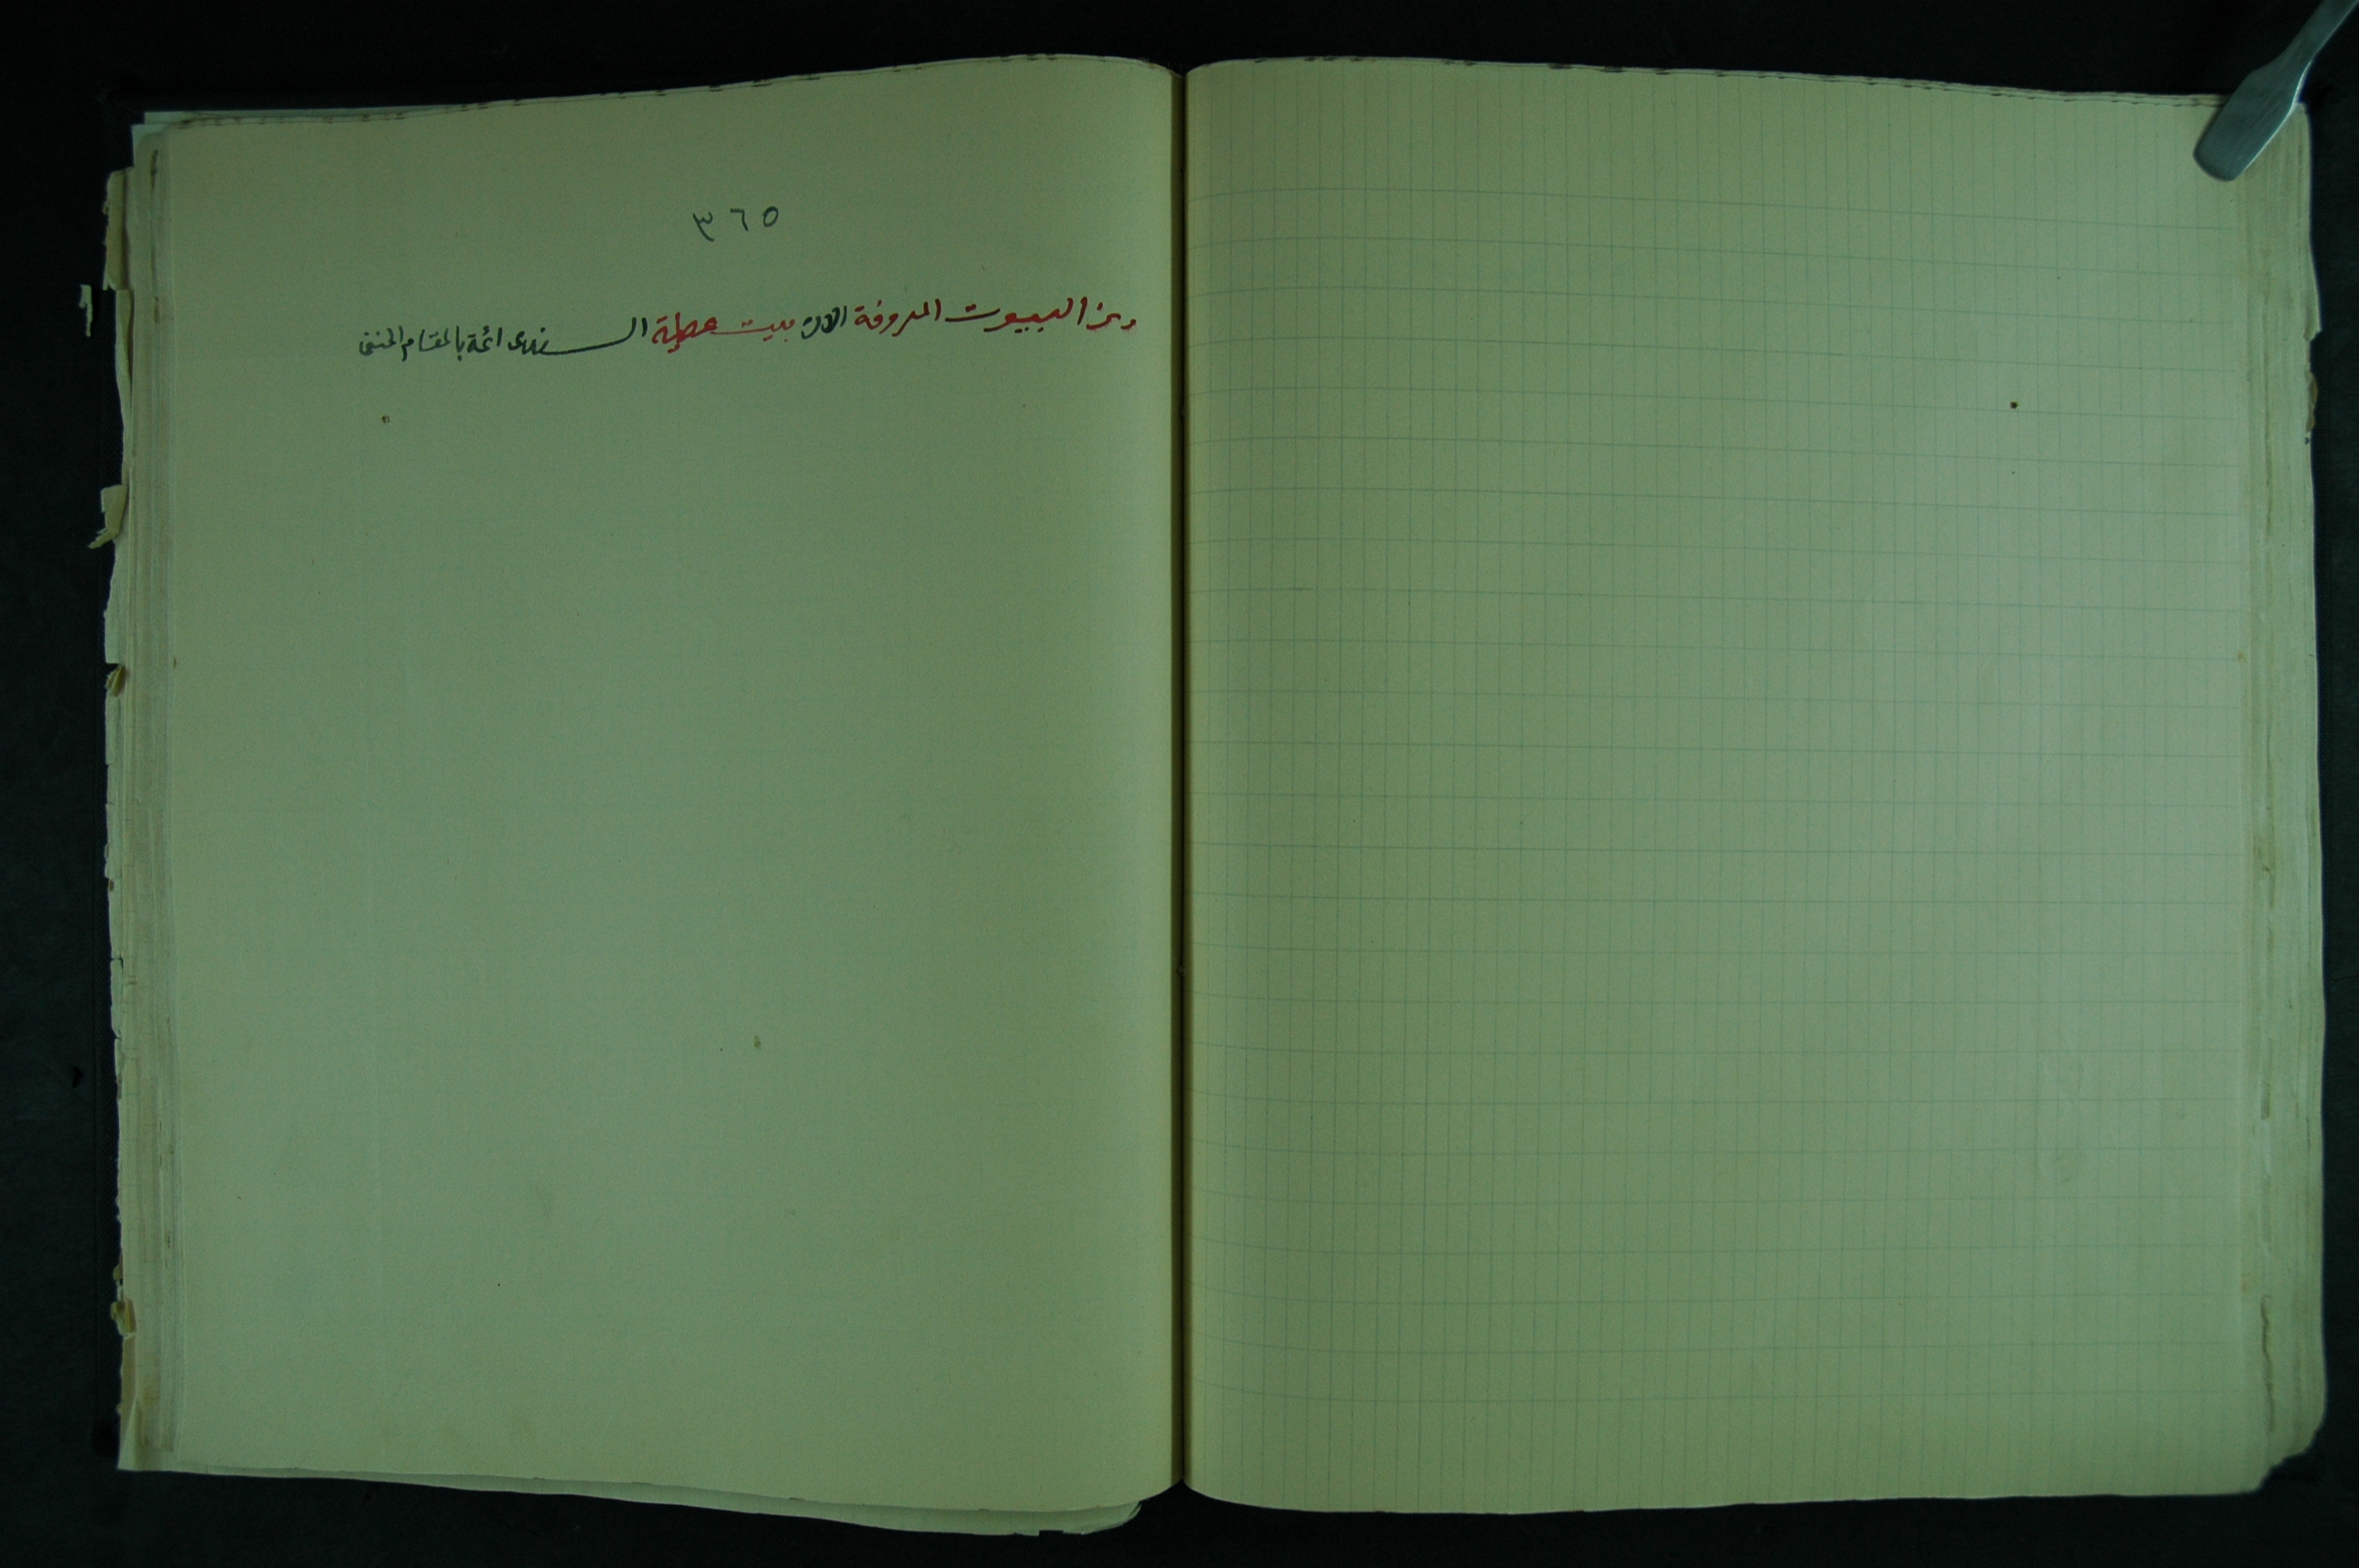 ٣٦٥
ومن البيوت المعروفة الان بيت عطية السندى ائمة بالمقام الحنفى